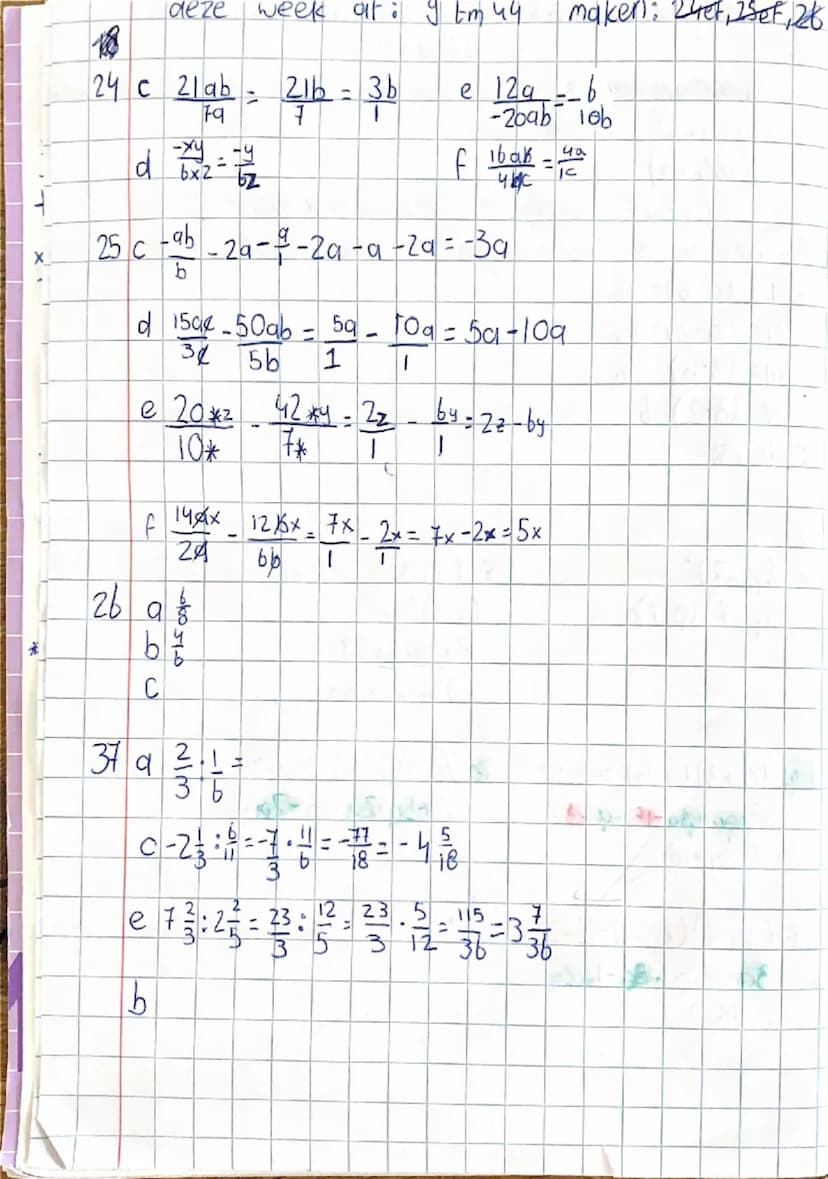 deze week af: 9 tm 44 maken: 24ef, 25ef, 26
24 c 21ab/7a = 21b/7 = 3b/1 e 12a/-20ab = -6/10b
d -xy/6xz = -y/6z f 16ab/4bc = 4a/1c
25 c -ab/b - 2a - a/1 - 2a - a - 2a = -3a
d 15ac/3c - 50ab/5b = 5a/1 - 10a/1 = 5a - 10a
e 20xz/10x - 42xy/7x = 2z/1 - 6y/1 = 2z - 6y
f 14ax/2a - 12bx/6b = 7x/1 - 2x/1 = 7x - 2x = 5x
26 a 6/8
b 4/6
c
37 a 2/3 : 1/6 =
c -2 1/3 : 6/11 = -7/3 · 11/6 = -77/18 = -4 5/18
e 7 2/3 : 2 2/5 = 23/3 : 12/5 = 23/3 · 5/12 = 115/36 = 3 7/36
b